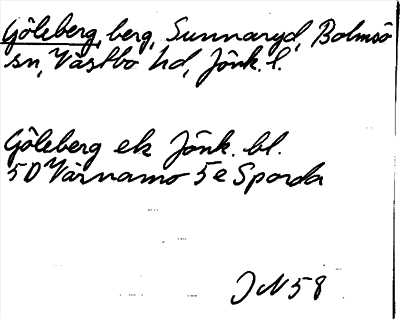 Göleberg, berg, Sunnaryd, Bolmsö
sn, Västbo hd, Jönk. l.
Göleberg ek Jönk. bl.
5D Värnamo 5e Sporda
JN 58